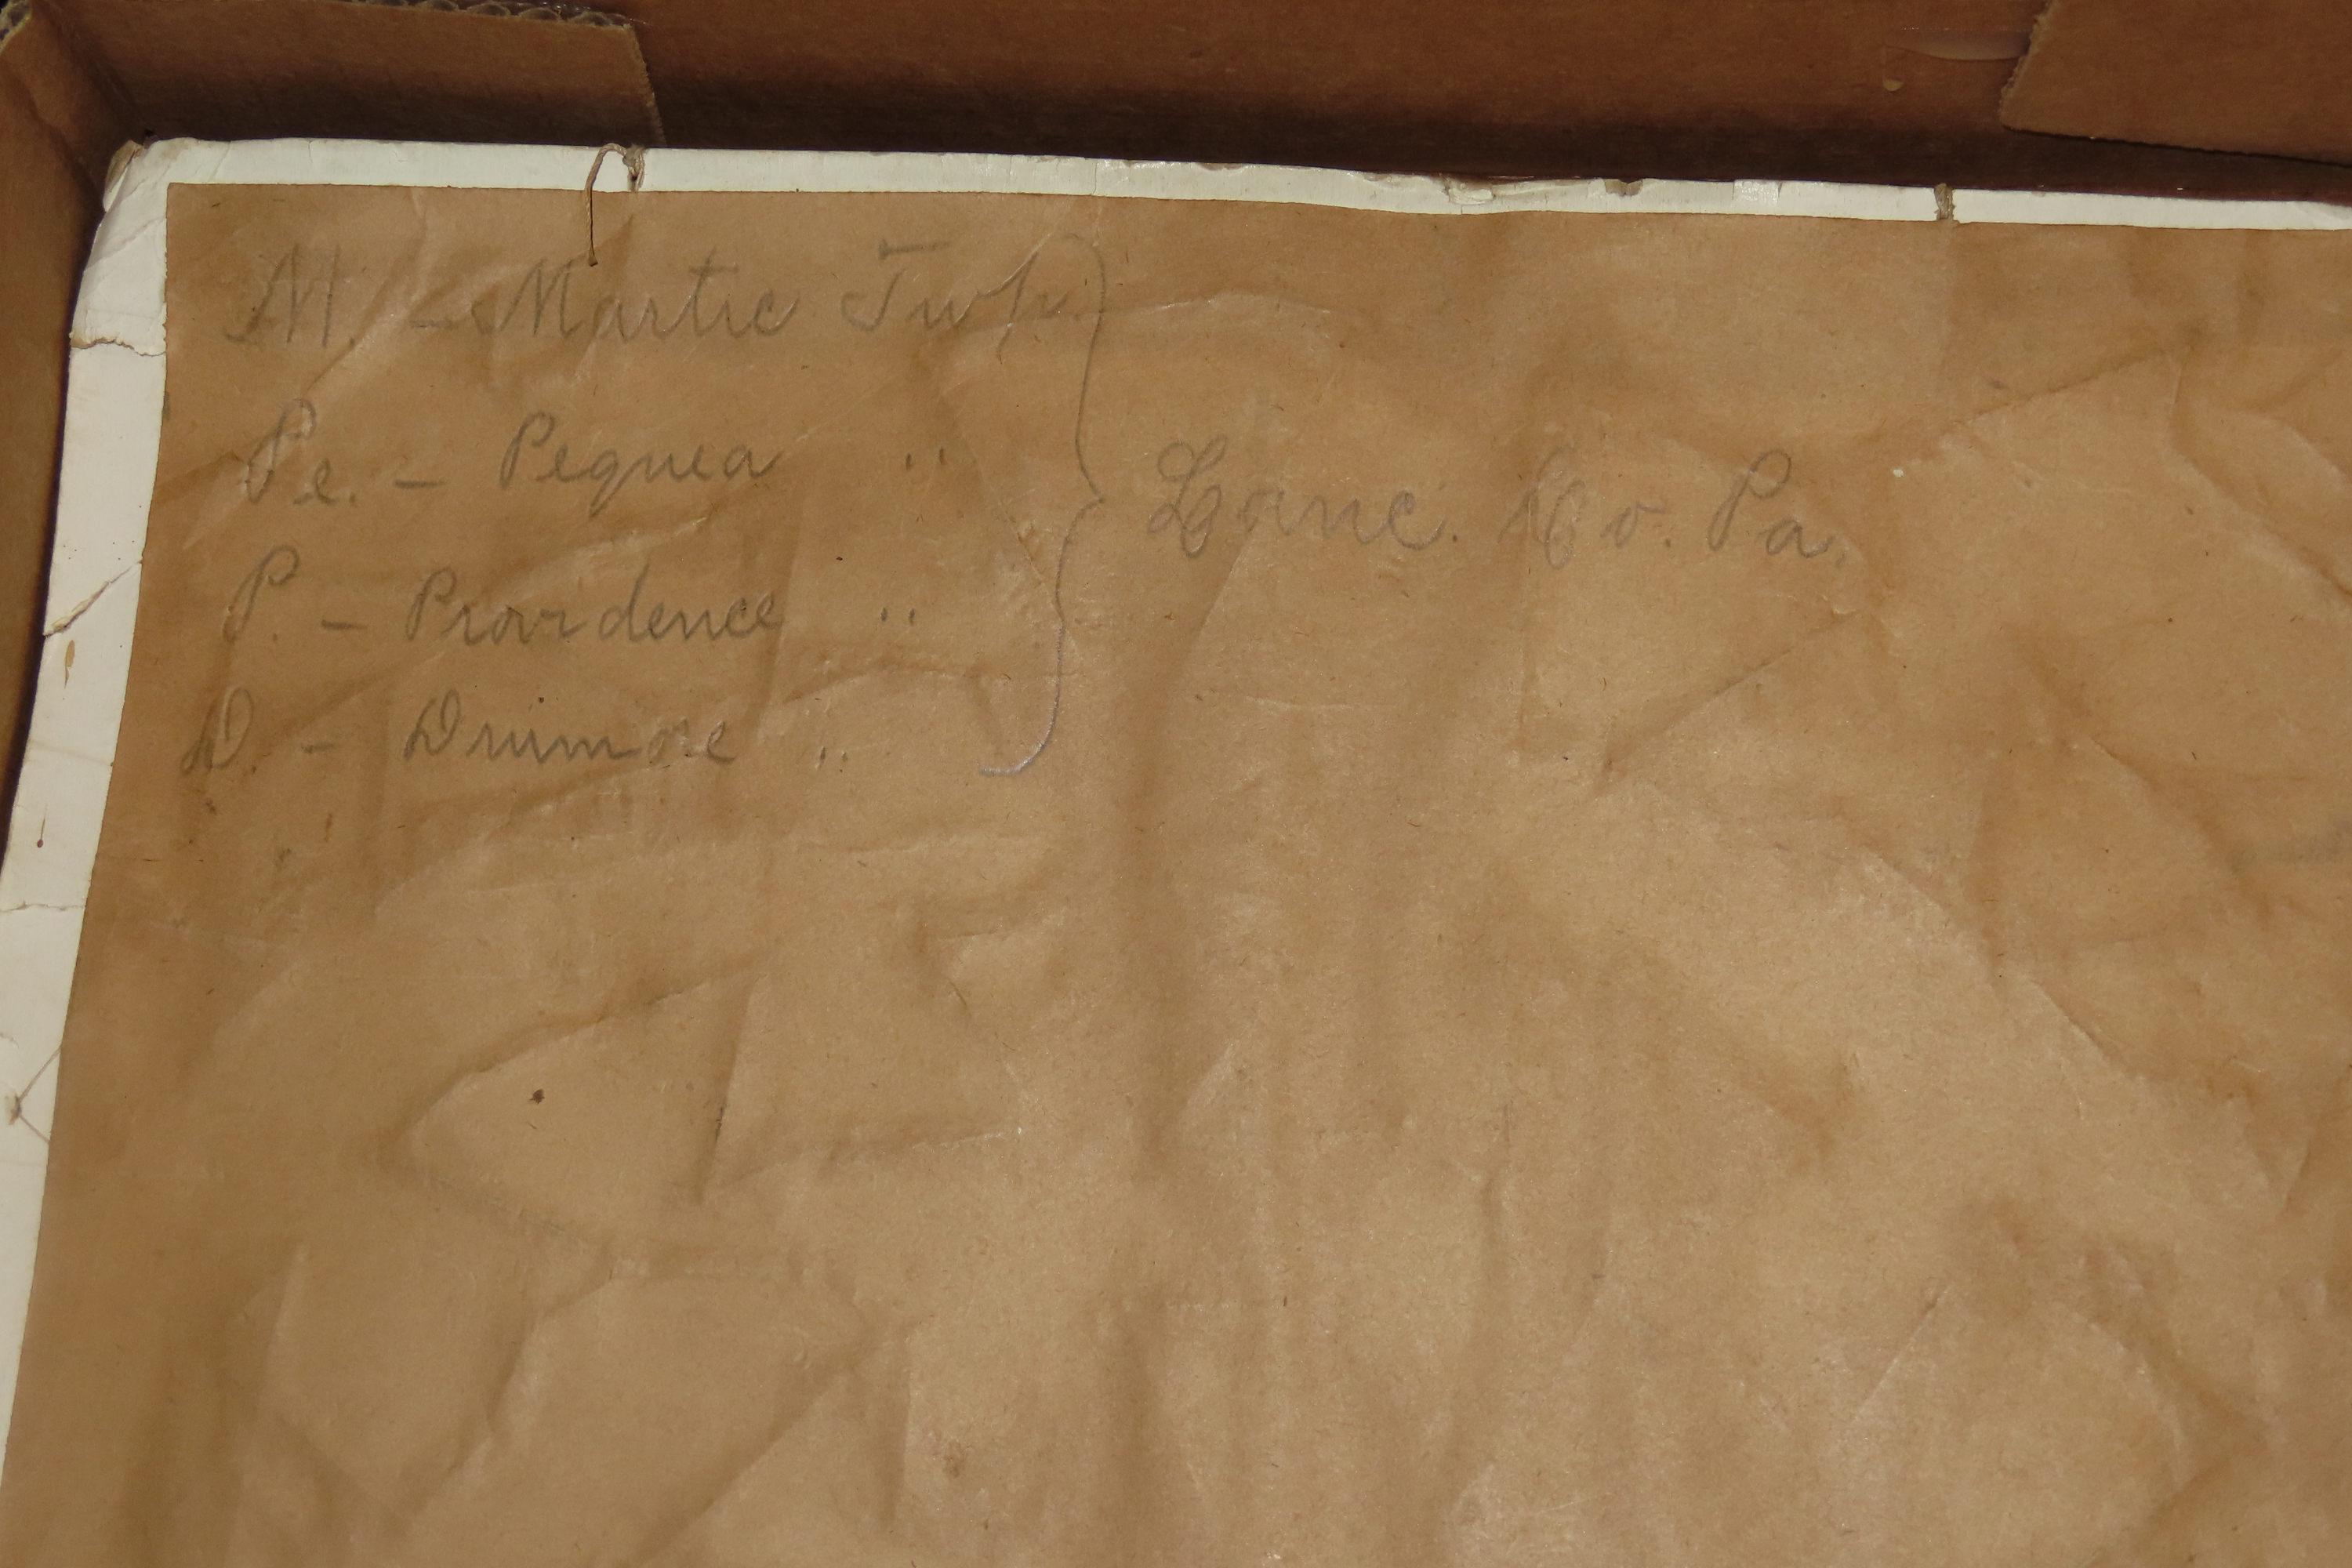 M. - Martic Twp.
Pe. - Pequea "
Lanc. Co. Pa.
P. - Providence "
D. - Drumore "